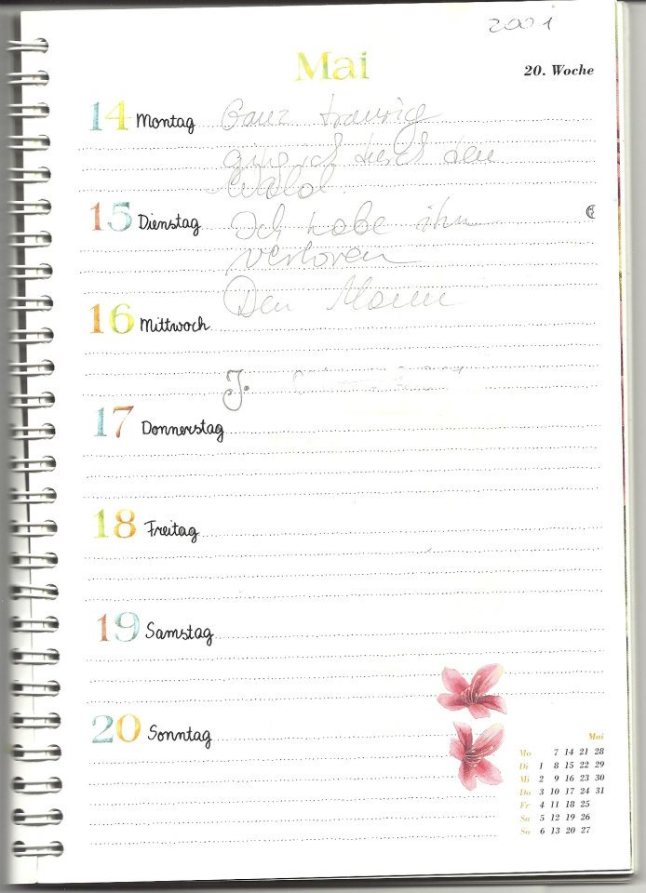 2001
Mai
20. Woche
14 Montag Ganz traurig
ging ich durch den
Wald.
15 Dienstag Ich habe ihn
verloren
Den Mann
16 Mittwoch
J.
17 Donnerstag
18 Freitag
19 Samstag
20 Sonntag
Mai
Mo 7 14 21 28
Di 1 8 15 22 29
Mi 2 9 16 23 30
Do 3 10 17 24 31
Fr 4 11 18 25
Sa 5 12 19 26
So 6 13 20 27